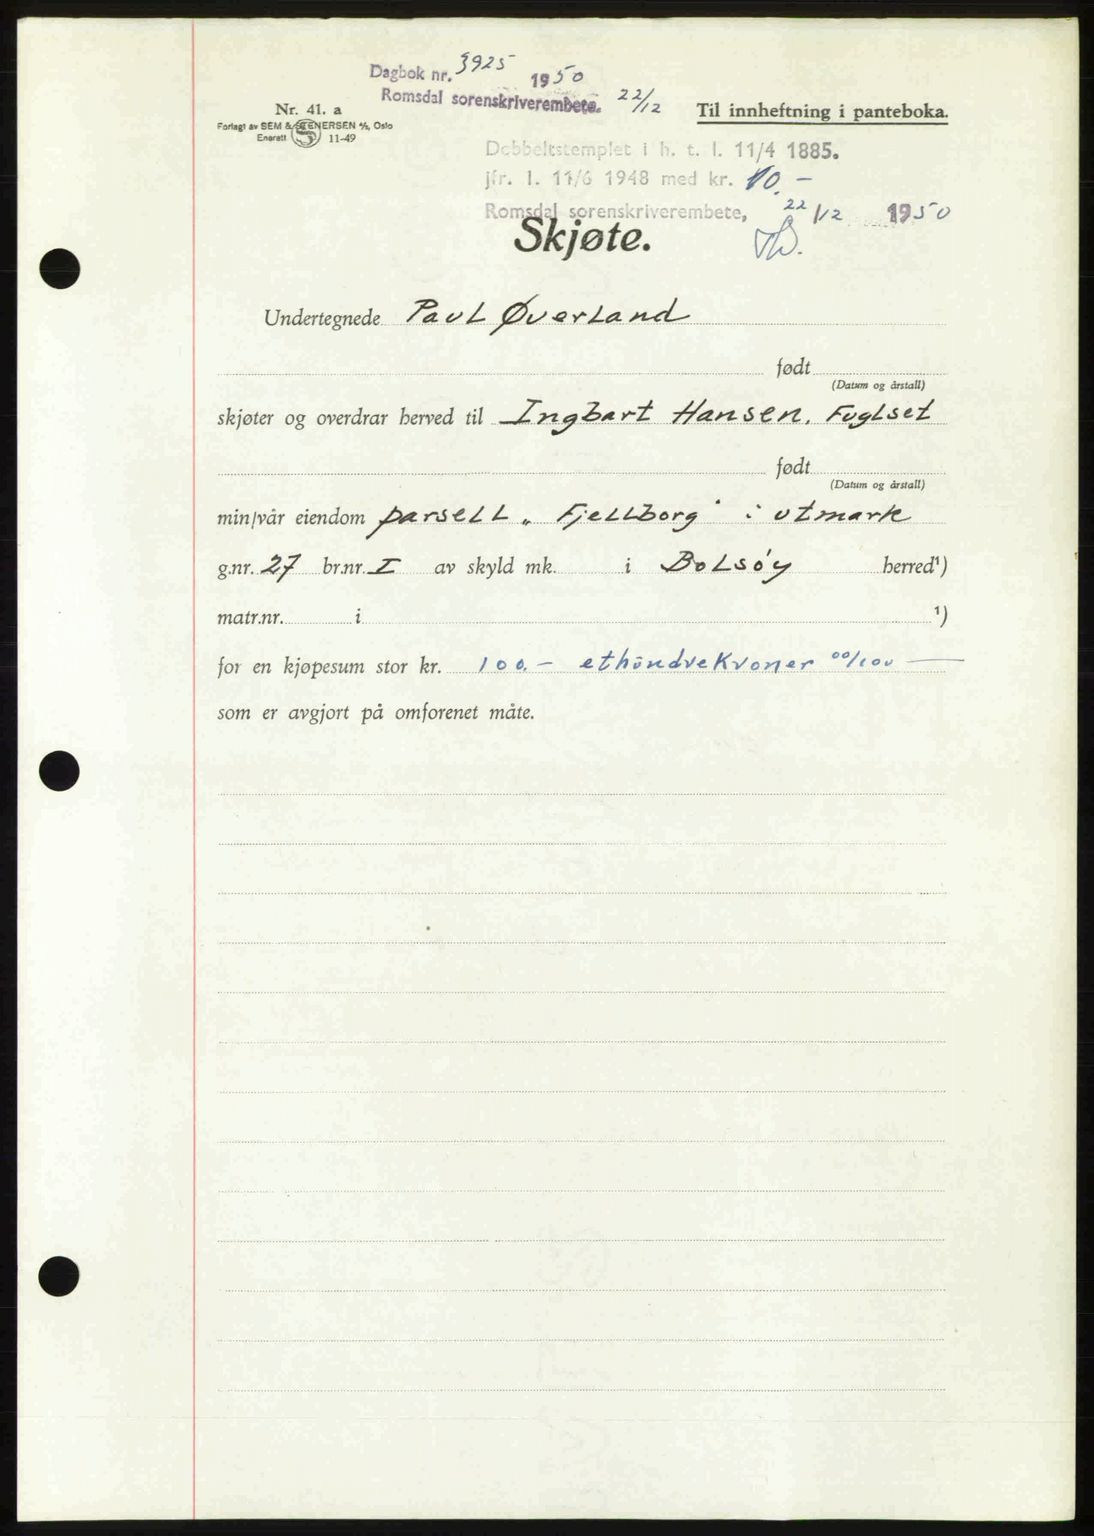 Dagbok nr. 3925 1950
Romsdal sorenskriverembete. 22/12
Nr. 41. a
Forlagt av SEM & STENERSEN A/S, Oslo
Enerett 11-49
Til innheftning i panteboka.
Dobbeltstemplet i h. t. l. 11/4 1885.
jfr. l. 11/6 1948 med kr. 10.-
Romsdal sorenskriverembete, 22/12 1950
Skjøte.
Undertegnede Paul Øverland
født
(Datum og årstall)
skjøter og overdrar herved til Ingbart Hansen, Fuglset
født
(Datum og årstall)
min/vår eiendom parsell „Fjellborg" i utmark
g.nr. 27 br.nr. I av skyld mk. i Bolsóy herred¹)
matr.nr. i ¹)
for en kjøpesum stor kr. 100.- ethundrekroner 00/100
som er avgjort på omforenet måte.